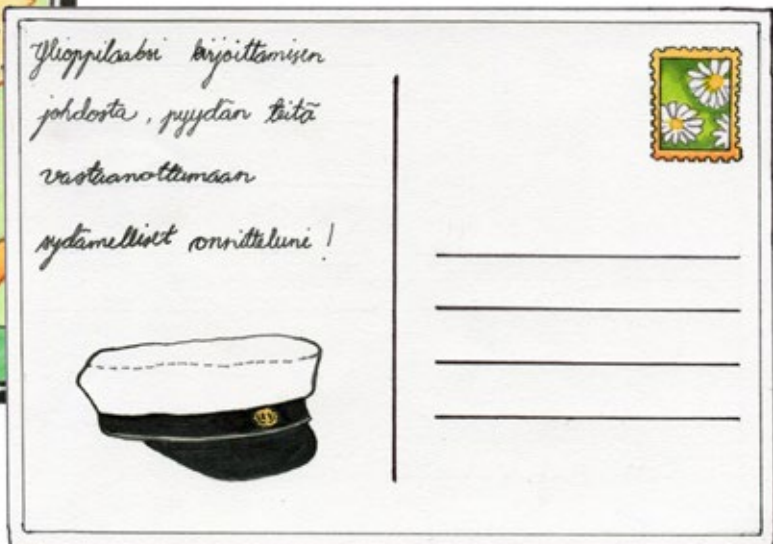 Ylioppilaaksi kirjoittamisen
johdosta, pyydän teitä
vastaanottamaan
sydämelliset onnitteluni!